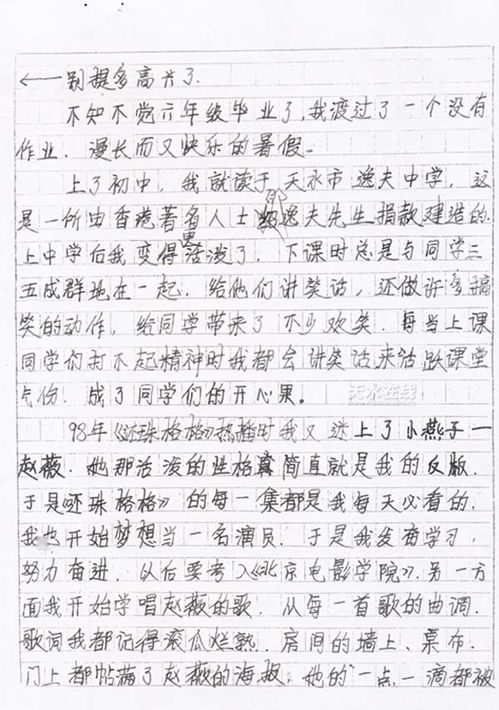 ←别提多高兴了.
不知不觉六年级毕业了,我渡过了一个没有
作业.漫长而又快乐的暑假。
上了初中,我就读于天水市逸夫中学,这
是一所由香港著名人士邵逸夫先生捐款建造的.
上中学后我变得更活泼了,下课时总是与同学三
五成群地在一起,给他们讲笑话,还做许多搞
笑的动作,给同学带来了不少欢笑.每当上课
同学们打不起精神时我都会讲笑话来活跃课堂
气份.成了同学们的开心果。
天水在线
98年《还珠格格》热播时我又迷上了小燕子一
赵薇.她那活泼的性格真简直就是我的反版.
于是《还珠格格》的每一集都是我每天必看的.
我也开始梦想当一名演员.于是我发奋学习,
努力奋进,以后要考入《北京电影学院》.另一方
面我开始学唱赵薇的歌.从每一首歌的曲调.
歌词我都记得滚瓜烂熟.房间的墙上、桌布.
门上都帖满了赵薇的海报,她的一点一滴都被